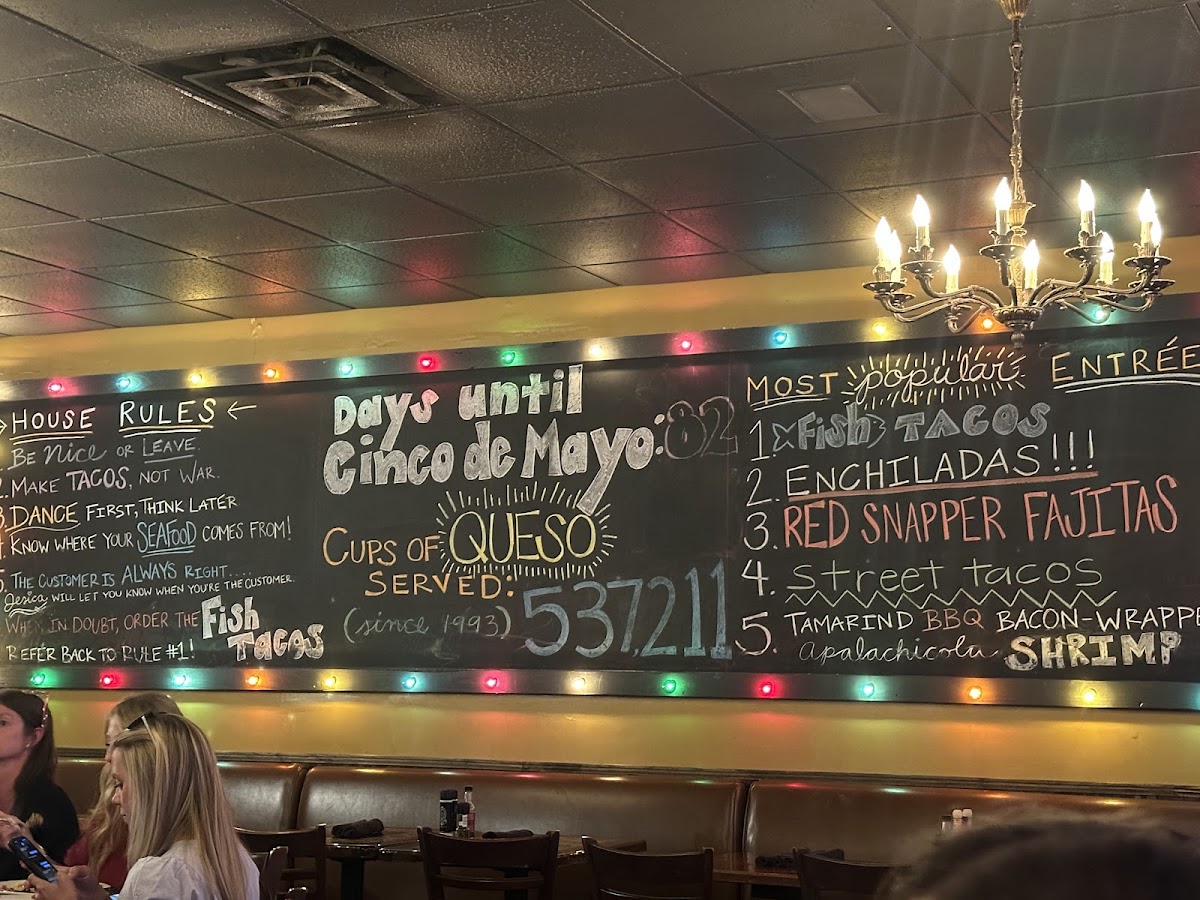 HOUSE RULES
BE nice OR LEAVE.
MAKE TACOS, NOT WAR.
DANCE FIRST, THINK LATER
KNOW WHERE YOUR SEAFOOD COMES FROM!
THE CUSTOMER IS ALWAYS RIGHT....
Jesica WILL LET YOU KNOW WHEN YOU'RE THE CUSTOMER.
WHEN IN DOUBT, ORDER THE Fish TACOS
REFER BACK TO RULE #1!
Days until
Cinco de Mayo: 82
CUPS OF QUESO
SERVED:
(since 1993) 537,211
MOST popular ENTRÉE
1. Fish TACOS
2. ENCHILADAS!!!
3. RED SNAPPER FAJITAS
4. street tacos
5. TAMARIND BBQ BACON-WRAPPE
apalachicola SHRIMP